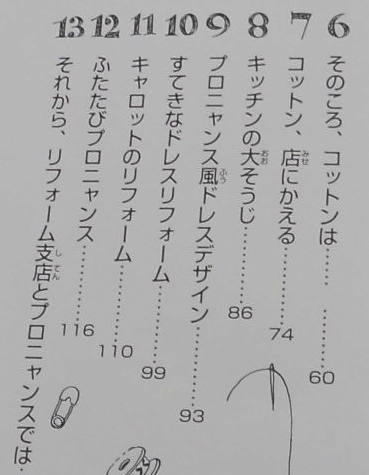 6 そのころ、コットンは…… 60
7 コットン、店にかえる 74
8 キッチンの大そうじ 86
9 プロニャンス風ドレスデザイン 93
10 すてきなドレスリフォーム 99
11 キャロットのリフォーム 110
12 ふたたびプロニャンス 116
13 それから、リフォーム支店とプロニャンスでは